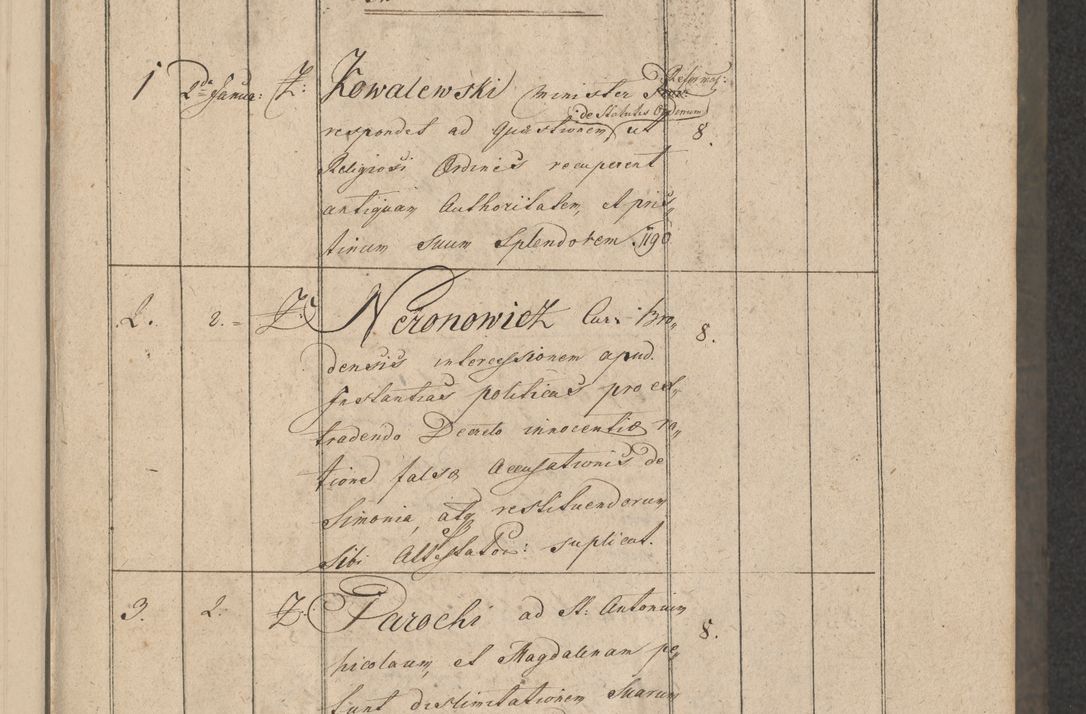 1 2da Janua: Z: Kowalewski minister Reformat:
de Statutis Ordinum
respondet ad Quæstionem ut 8.
Religiosi Ordines recuperent
antiquam Authoritatem, et pris„
tinum suum Splendorem 1790
2. 2. = Z: Neronowicz Cur: Bro„ 8.
densis intercessionem apud
Instantias politicas pro ex„
tradendo Decreto innocentiæ ra„
tione falsæ Accusationis de
Simonia, atq restituendorum
sibi Attestator: suplicat.
3. 2. Z: Parochi ad St: Antonium 8.
Nicolaum, et Magdalenam pe„
tunt dislimitationem Suarum